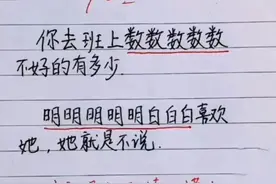 你去班上数数数数数
不好的有多少.
明明明明明白白白喜欢
她，她就是不说.